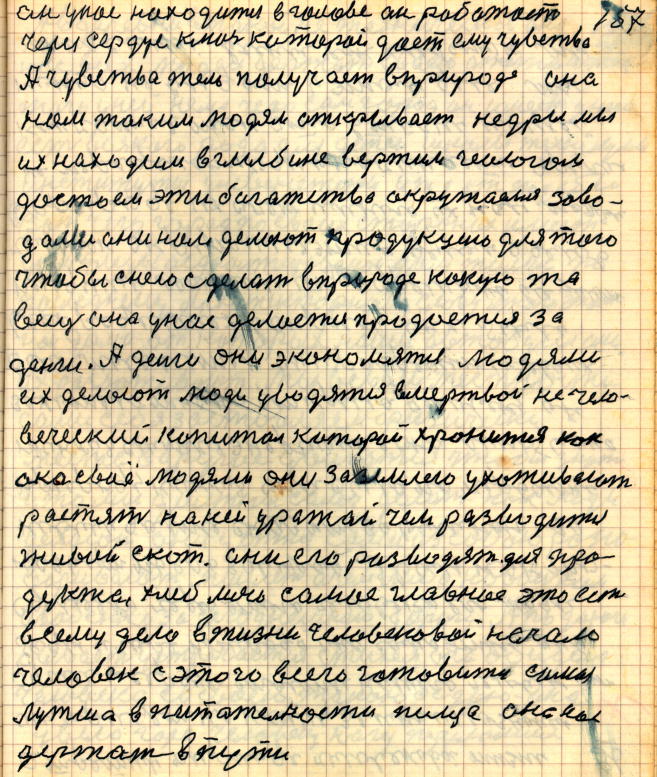 он унас находится вголове он работает 157
через сердце кмоз каторой дает ему чувства
А чувства тель получает вприроде она
нам таким людям открывает недры мы
их находим вглыбине вертим геологом
достоем эти багатства окружаемя заво-
дами они нам делоют продукцию для того
чтобы снего сделат вприроде какую та
вещ она унас делается продоется за
денги. А денги они экономятся людями
их делоют люди уводятся вмертвой нечело-
веческий капитал каторой хронится как
око своё людями они за землею ухаживают
растят наней уражай чем разводится
живой скот. они его разводят для про-
дукта, хлеб мясо самое главное это есть
всему дело вжизни человековой начало
человек сэтого всего готовится самая
лутша впитателности пища она нас
держат впути